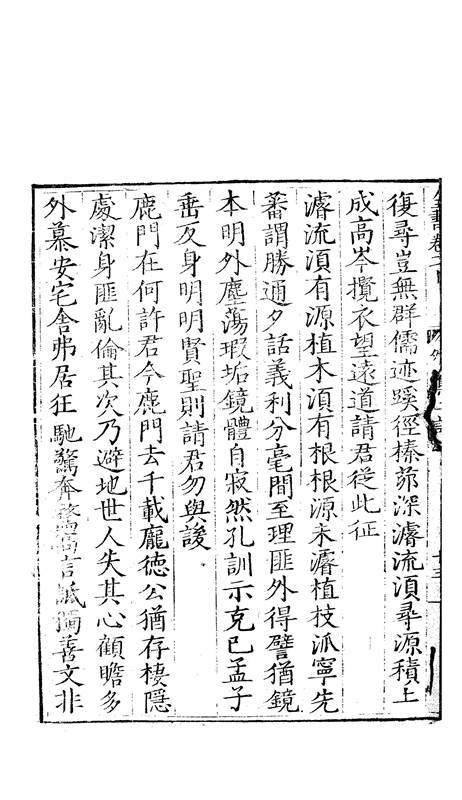 復尋豈無群儒迹蹊徑榛茆深濬流湏尋源積土
成高岑攬衣望遠道請君從此征
濬流湏有源植木湏有根根源未濬植枝派寧先
蕃謂勝通夕話義利分毫間至理匪外得譬猶鏡
本明外塵蕩瑕垢鏡體自寂然孔訓示克己孟子
垂反身明明賢聖則請君勿與諼
鹿門在何許君今鹿門去千載龐德公猶存棲隱
處潔身匪亂倫其次乃避地世人失其心顧瞻多
外慕安宅舍弗居狂馳驚奔騖高言詆獨善文非